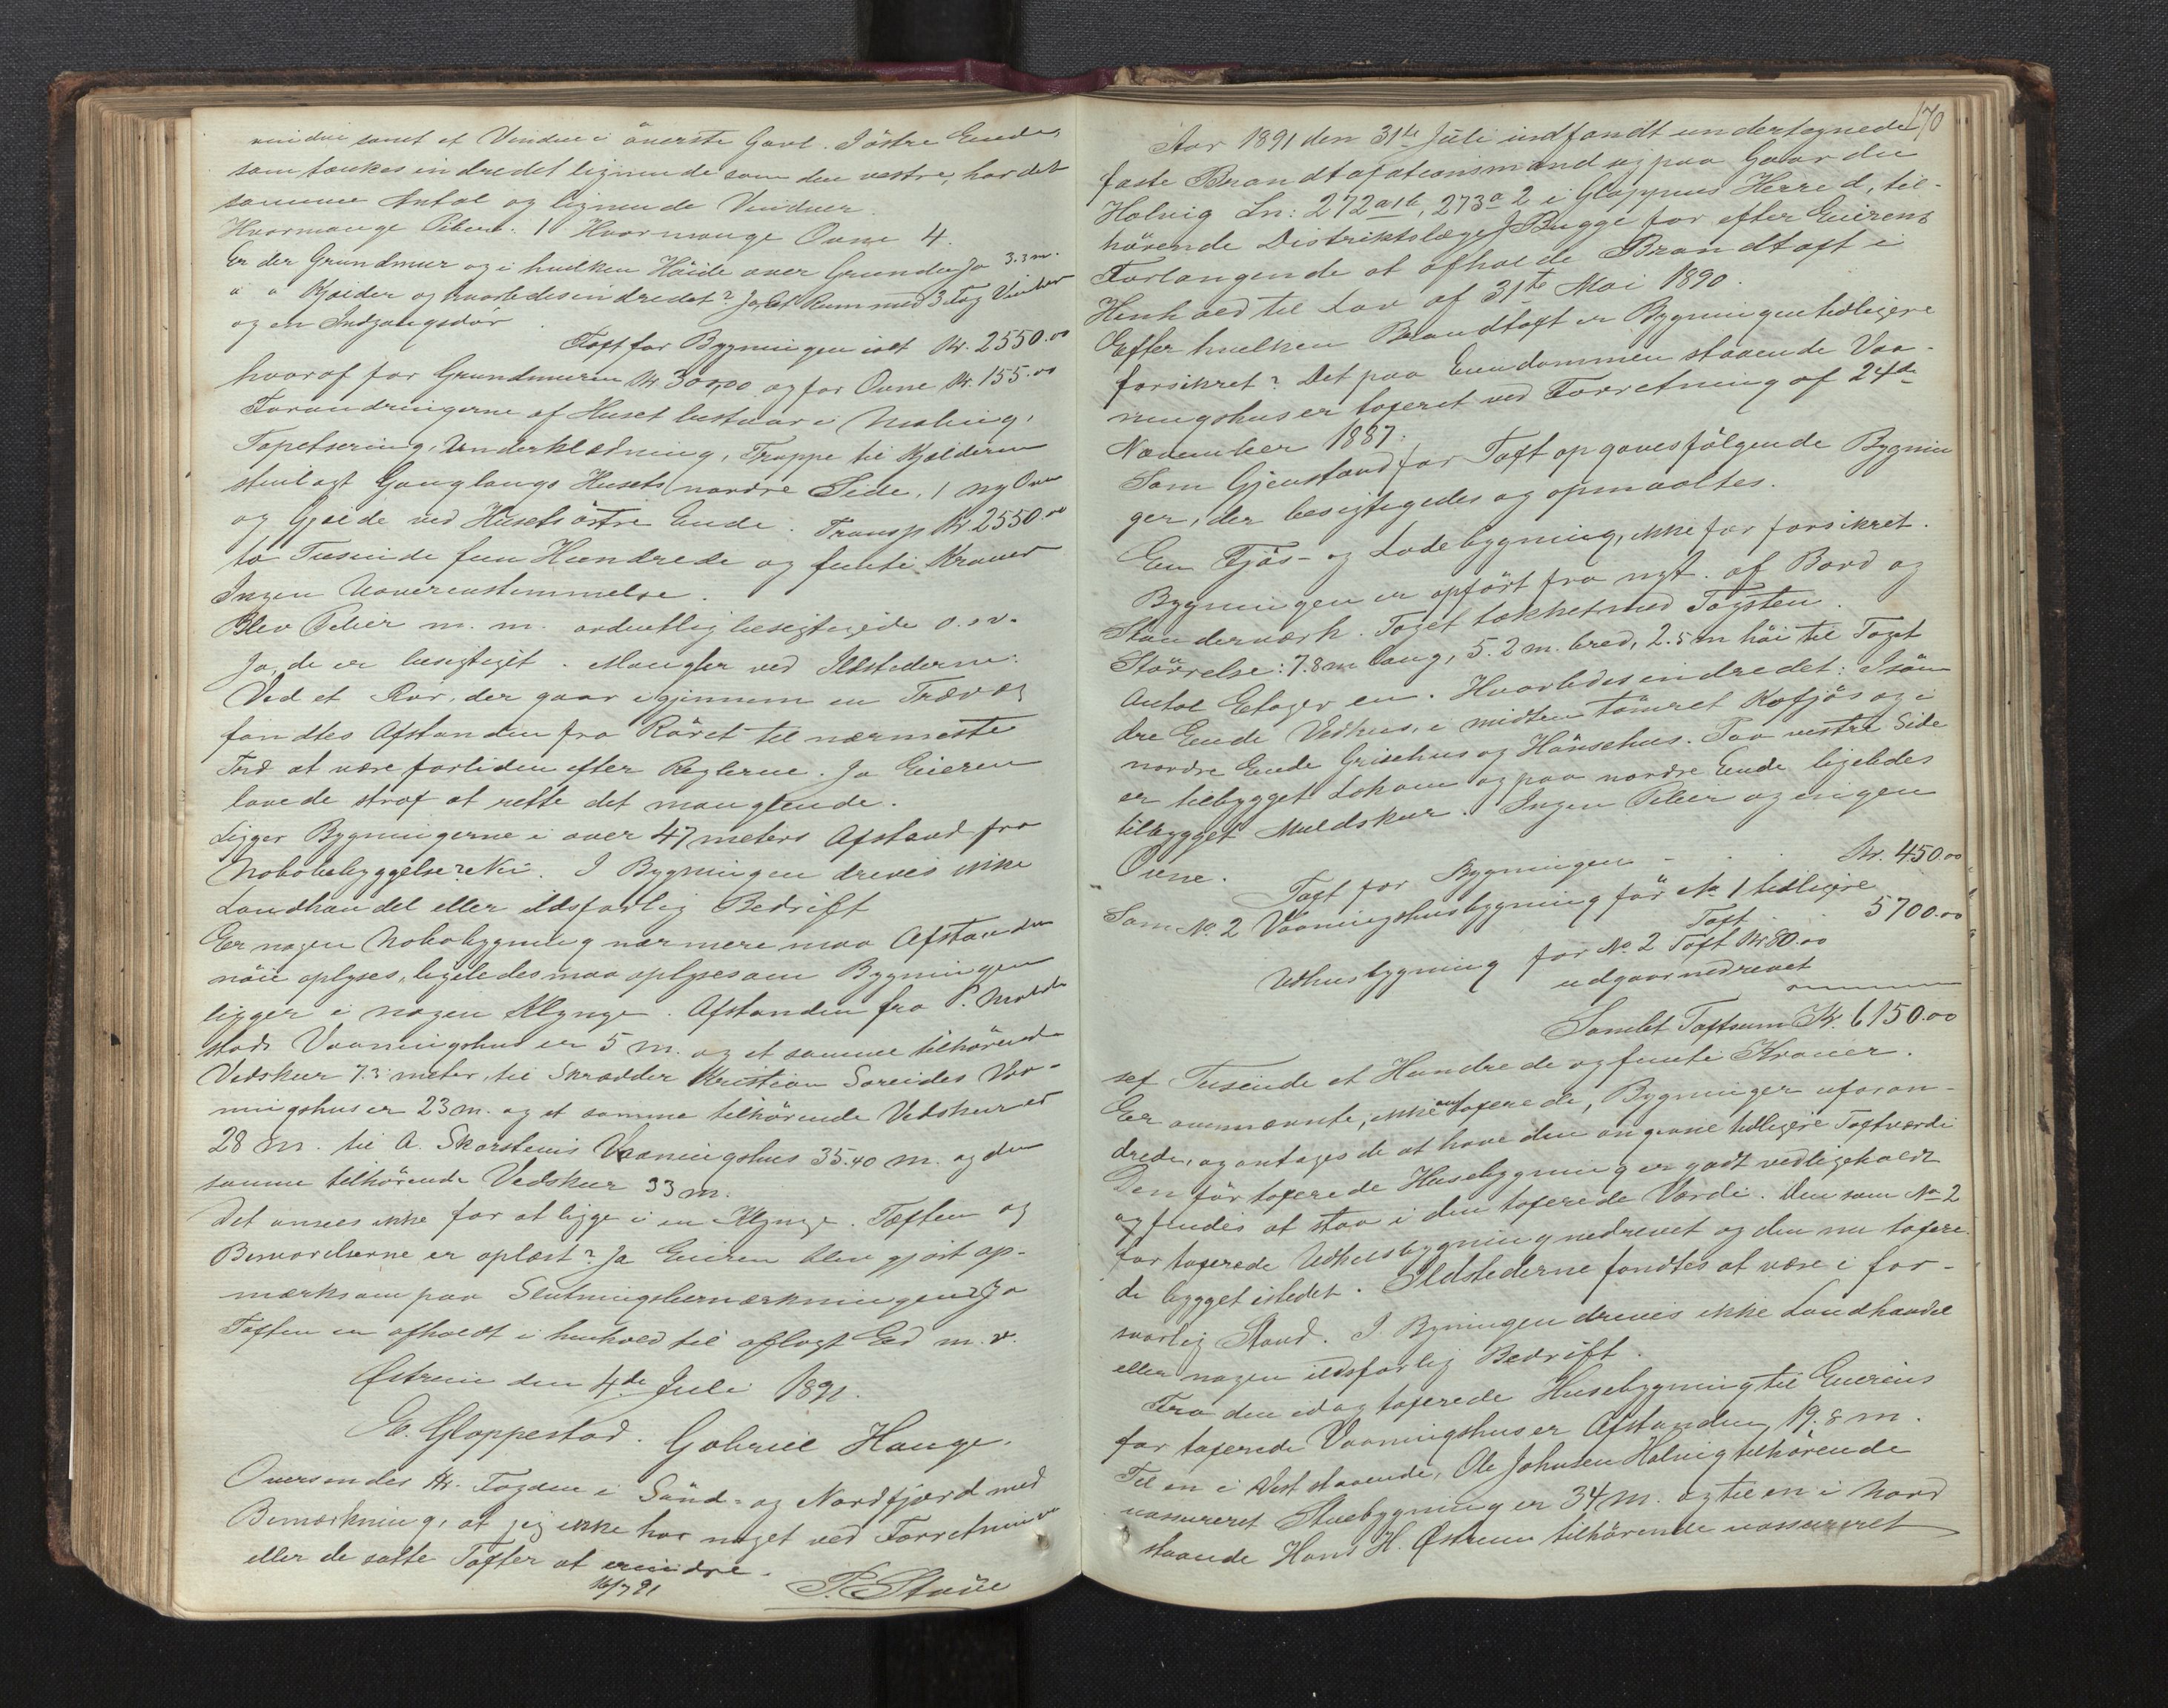 vindue samt et Vindue i överste Gavl. I östre Ende,
som tænkes indredet lignende som den vestre, har det
samme Antal og lignende Vinduer.
Hvormange Piber: 1 Hvormange Ovne 4.
Er der Grundmur og i hvilken Höide over Grunden Ja 3.3 m.
" " Kjelder og hvorledes indredet? Ja, et Rum med 3 Fag Vinduer
og en Indgangsdör.
Taxt for Bygningen ialt Kr. 2550.00
hvoraf for Grundmuren Kr 300,00 og for Ovne Kr. 155.00
Forandringerne af Huset bestaar i Maling,
Tapetsering, Underklædning, Trappe til Kjelderen
stenlagt Gang langs Husets nordre Side, 1 ny Ovn
og Gjærde ved Husets östre Ende. Transp Kr. 2550.00
to Tusinde fem Hundrede og femti Kroner
Ingen Uoverenstemmelse.
Blev Piber m. m. ordentlig besigtigede o. s v.
Ja, de er besigtiget. Mangler ved Ildstederne:
Ved et Rör, der gaar igjennem en Trævæg
fandtes Afstanden fra Röret til nærmeste
Træ at være forliden efter Reglerne. Ja Eieren
lovede straf at rette det manglende.
Ligger Bygningerne i over 47 meters Afstand fra
Nabobebyggelse? Nei. I Bygningen drives ikke
Landhandel eller ildsfarlig Bedrift
Er nogen Nabobygning nærmere maa Afstanden
nöie oplyses, ligeledes maa oplyses om Bygningen
ligger i nogen Klynge. Afstanden fra P.
stads Vaaningshus er 5 m. og et samme tilhörende
Vedskur 7.3 meter, til Skrædder Kristian Soreides Vaa-
ningshus er 23 m. og et samme tilhörende Vedskur er
28 m. til A. Skarsteins Vaaningshus 35.40 m. og den
samme tilhörende Vedskur 33 m.
Det ansees ikke for at ligge i en Klynge. Taxten og
Besvarelserne er oplæst? Ja Eieren blev gjort op-
mærksom paa Slutningsbemærkningen? Ja
Taxten er afholdt i henhold til aflagt Ed m. v.
Østreim den 4de Juli 1891.
E. Gloppestad. Gabriel Hauge.
Oversendes Hr. Fogden i Sönd- og Nordfjord med
Bemærkning, at jeg ikke har noget ved Forretningen
eller de satte Taxter at erindre.
16/7 91 P.
170
Aar 1891 den 31te Juli indfandt undertegnede
faste Brandtaxationsmænd sig paa Gaarden
Holvig Ln: 272 a 1 b, 273 a 2 i Gloppens Herred, til-
hörende Distriktslæge J Bugge for efter Eierens
Forlangende at afholde Brandtaxt i
Henhold til Lov af 31te Mai 1890.
Efter hvilken Brandtaxt er Bygningen tidligere
forsikret? Det paa Eiendommen staaende Vaa-
ningshus er taxeret ved Forretning af 24de
November 1887.
Som Gjenstand for Taxt opgaves fölgende Bygnin
ger, der besigtigedes og opmaaltes.
En Fjös- og Ladebygning, ikke för forsikret.
Bygningen er opfört fra nyt. af Bord og
Stænderværk. Taget tækket med Tagsten.
Störrelse: 7.8 m lang, 5.2 m. bred, 2.5 m höi til Taget
Antal Etager en. Hvorledes indredet: I sön
dre Ende Vedhus, i midten tömret Kofjös og i
nordre Ende Grisehus og Hönsehus. Paa vestre Side
er tilbygget Lokum og paa nordre Ende ligeledes
tilbygget Muldskur. Ingen Piber og ingen
Ovne.
Taxt for Bygningen - . . Kr. 450.00
Som No. 2 Vaaningshusbygning för No 1 tidligere
Taxt . . 5700.00
Udhusbygning för No 2 Taxt Kr 80.00
udgaar nedrevet
Samlet Taxtsum Kr. 6150.00
sex Tusinde et Hundrede og femti Kroner.
Er omnævnte, ikke omtaxerede, Bygninger uforan-
drede, og antages de at have den angivne tidligere Taxtværdi
Den för taxerede Husebygning er godt vedligeholdt
og findes at staa i den taxerede Værdi. Den som No 2
för taxerede Udhusbygning nedrevet og den nu taxere-
de bygget istedet. Ildstederne fandtes at være i for-
svarlig Stand. I Bygningen drives ikke Landhandel
eller nogen ildsfarlig Bedrift.
Fra den idag taxerede Husebygning til Eierens
för taxerede Vaaningshus er Afstanden 19.8 m.
Til en i Vest staaende, Ole Johnsen Holvig tilhörende
uassureret Stuebygning er 34 m. og til en i Nord
staaende Hans H. Østreim tilhörende uassureret